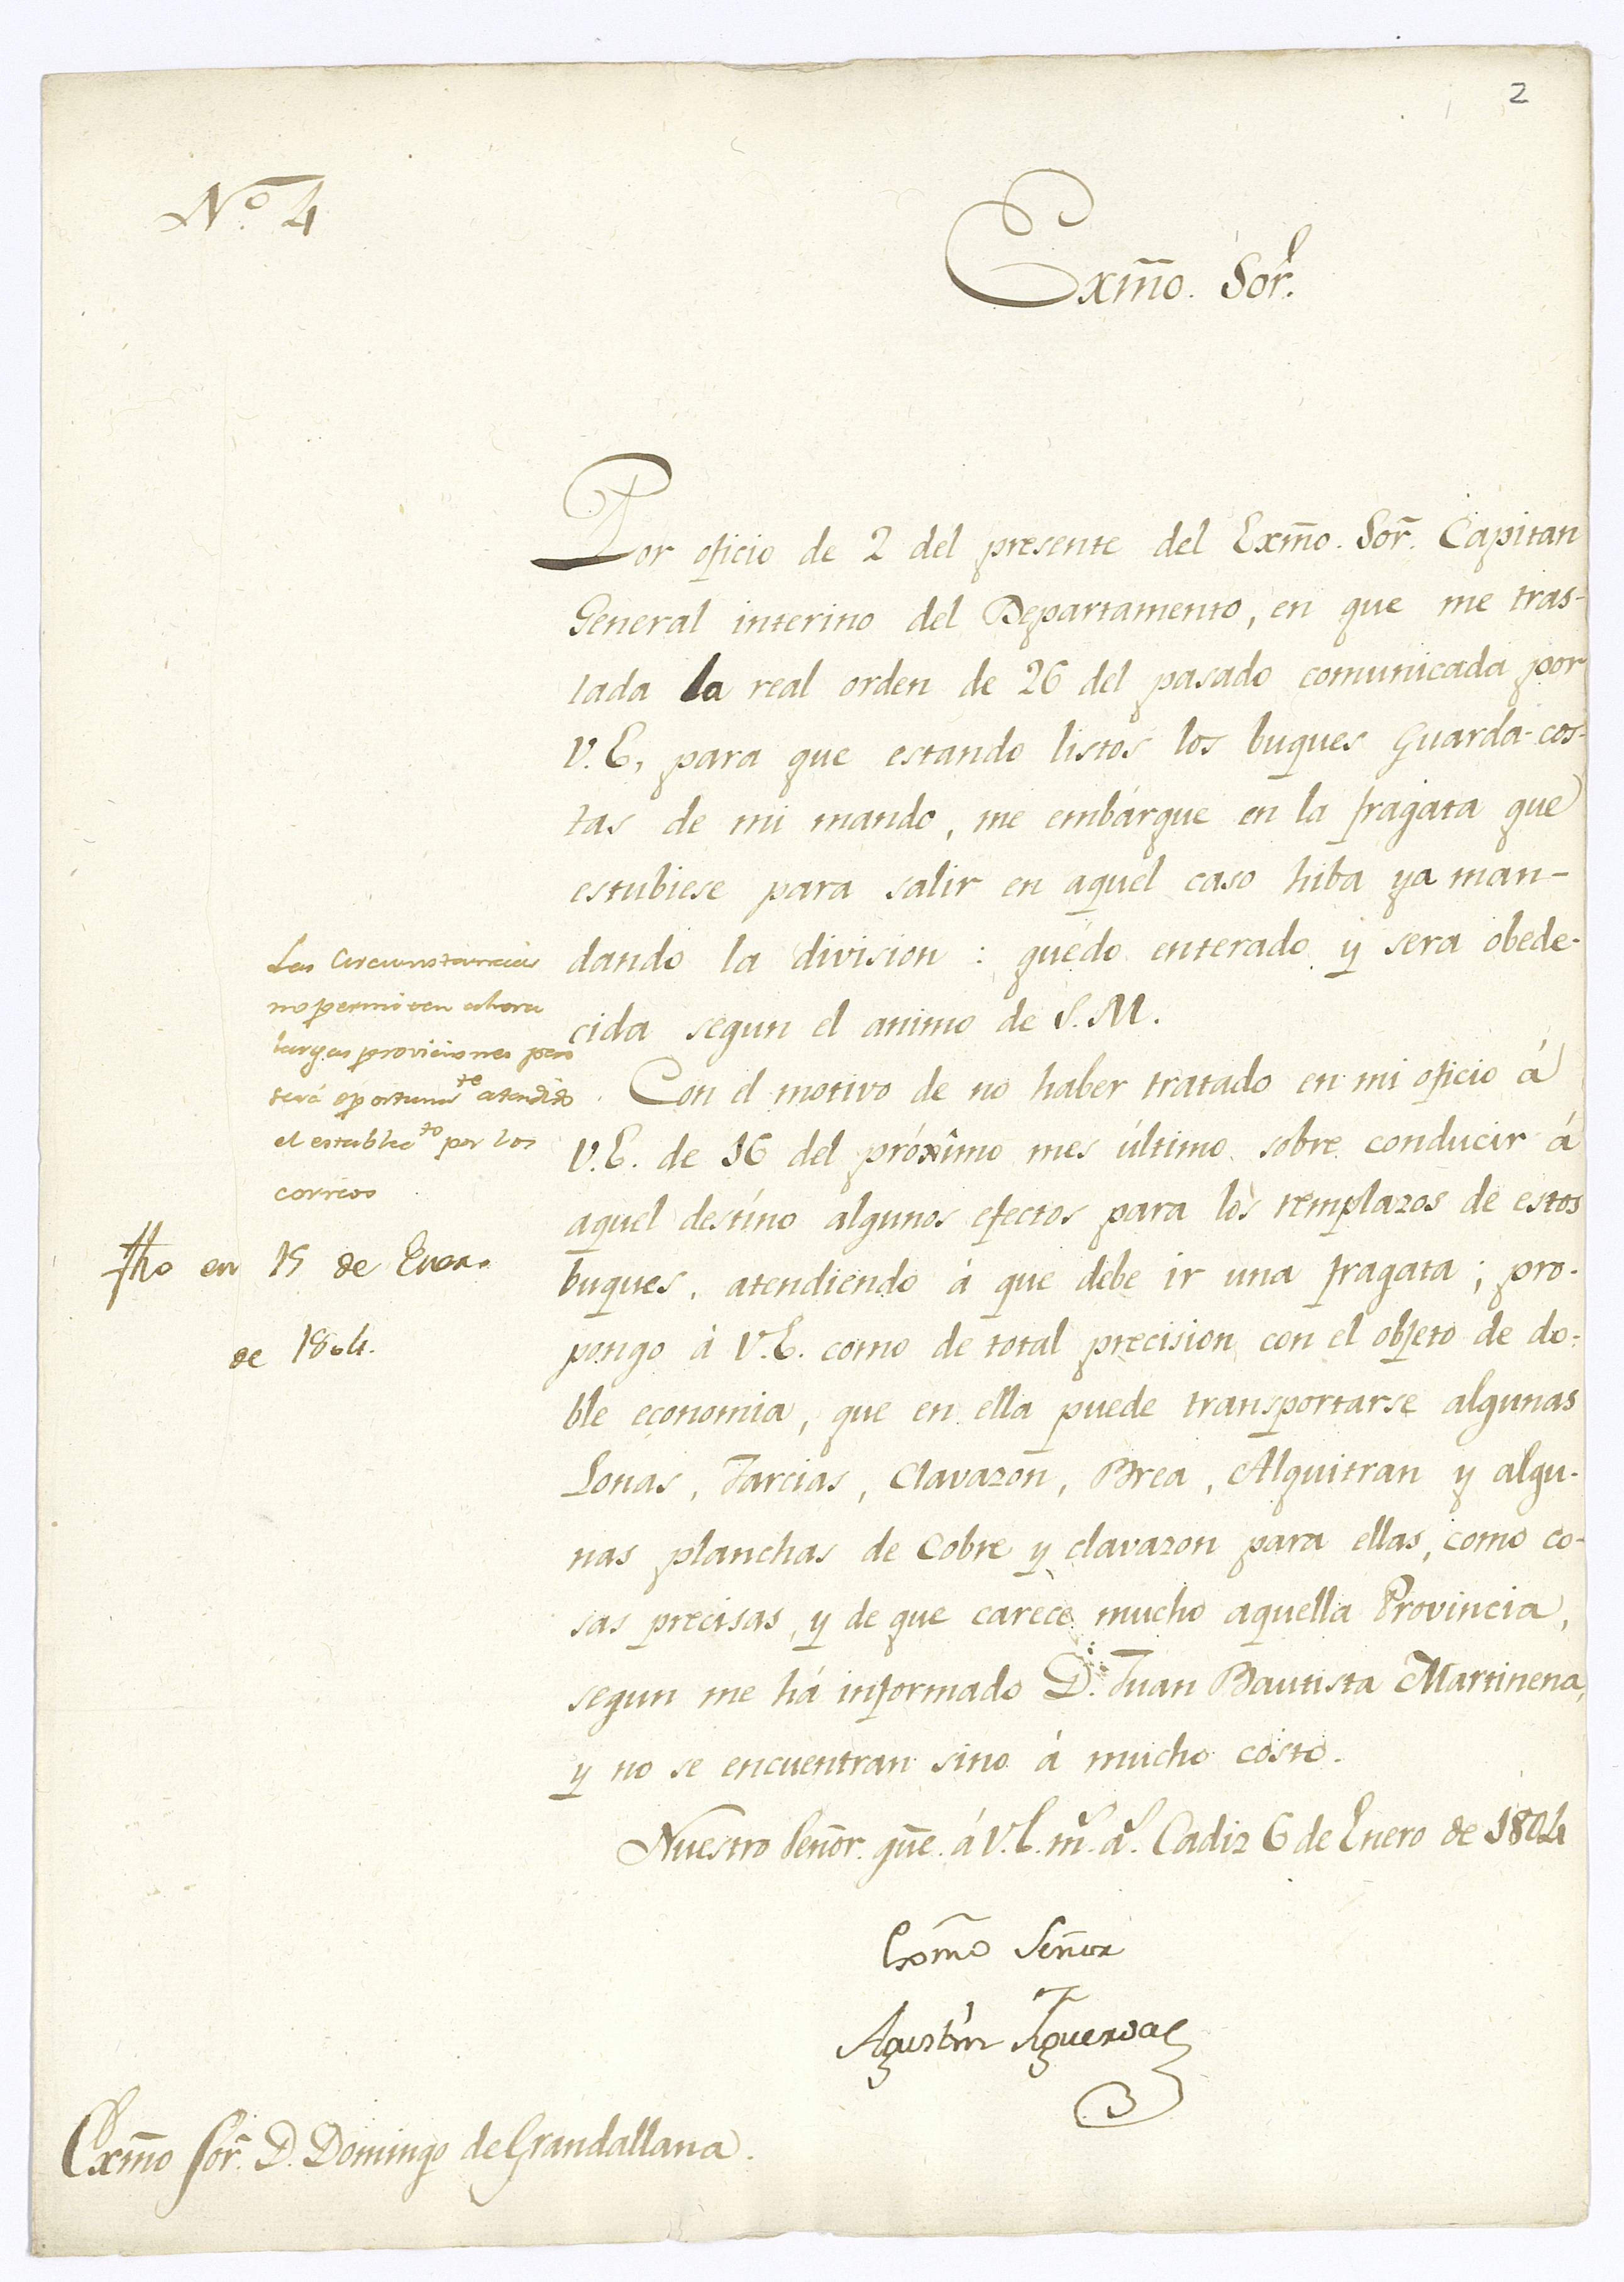 2
Nº. 4
Exm̃o. Sor̃.
Por oficio de 2 del presente del Exm̃o. Sor̃. Capitan
General interino del Departamento, en que me tras-
lada la real orden de 26 del pasado comunicada por
V.E, para que estando listos los buques Guarda-cos-
tas de mi mando, me embárque en la fragata que
estubiese para salir en aquel caso hiba ya man-
dando la division: quédo enterado y sera obede-
cida segun el animo de S.M.
Con el motivo de no haber tratado en mi oficio á
V.E. de 16 del próxîmo mes último sobre conducir á
aquel destíno algunos efectos para los remplazos de estos
buques, atendiendo á que debe ir una fragata; pro-
pongo á V.E. como de total precision con el objeto de do-
ble economia, que en ella puede transportarse algunas
Lonas, Jarcias, Clavazon, Brea, Alquitran y algu-
nas planchas de Cobre y clavazon para ellas, como co-
sas precisas, y de que carece mucho aquella Provincia,
segun me há informado D. Juan Bautista Martinena,
y no se encuentran sino á mucho costo.
Nuestro Señor. gue. á V.E. ms. as. Cadiz 6 de Enero de 1804
Exmo Señor
Agustin Figueroa
Exm̃o Sor̃. D. Domingo de Grandallana.
Las Circunstancias
no permiten ahora
largas proviciones pero
será oportunte atendido
el establecto por los
correos
fho en 15 de Enero.
de 1804.